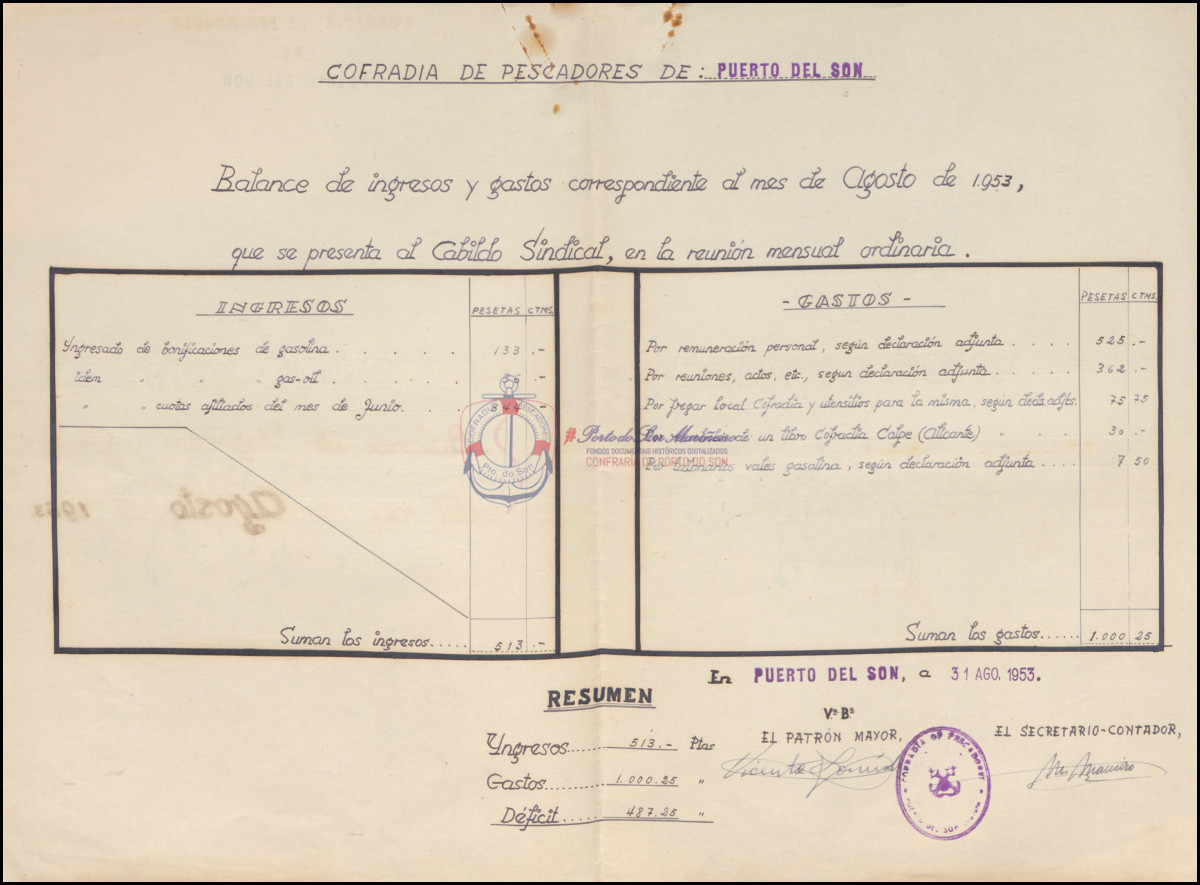 COFRADIA DE PESCADORES DE: PUERTO DEL SON
Balance de ingresos y gastos correspondiente al mes de Agosto de 1.953,
que se presenta al Cabildo Sindical, en la reunión mensual ordinaria.
INGRESOS PESETAS CTMS.
Yngresado de bonificaciones de gasolina . . . . . . 133 .-
idem " " " gas-oil . . . . . . 36 .-
" " cuotas afiliados del mes de Junio. . . . 344
Suman los ingresos..... 513 .-
- GASTOS - PESETAS CTMS.
Por remuneración personal, según declaración adjunta . . . . 525 .-
Por reuniones, actos, etc., segun declaración adjunta . . . . . 362 .-
Por fregar local Cofradía y utensilios para la misma, según decla.adjta. 75 75
un libro Cofradía Calpe (Alicante) " 30 .-
vales gasolina, según declaración adjunta . . . . 7 50
Suman los gastos...... 1.000 25
COFRADIA PESCADORES
Pto. do Son
# Porto do Son
FONDOS DOCUMENTAIS HISTÓRICOS DIXITALIZADOS
CONFRARÍA DE PORTO DO SON
Agosto 1953
En PUERTO DEL SON, a 31 AGO. 1953.
RESUMEN
Yngresos...... 513.- Ptas
Gastos........ 1.000.25 "
Déficit..... 487.25 "
Vº Bº
EL PATRÓN MAYOR,
Vicente
EL SECRETARIO-CONTADOR,
COFRADIA DE PESCADORES
PUERTO DEL SON